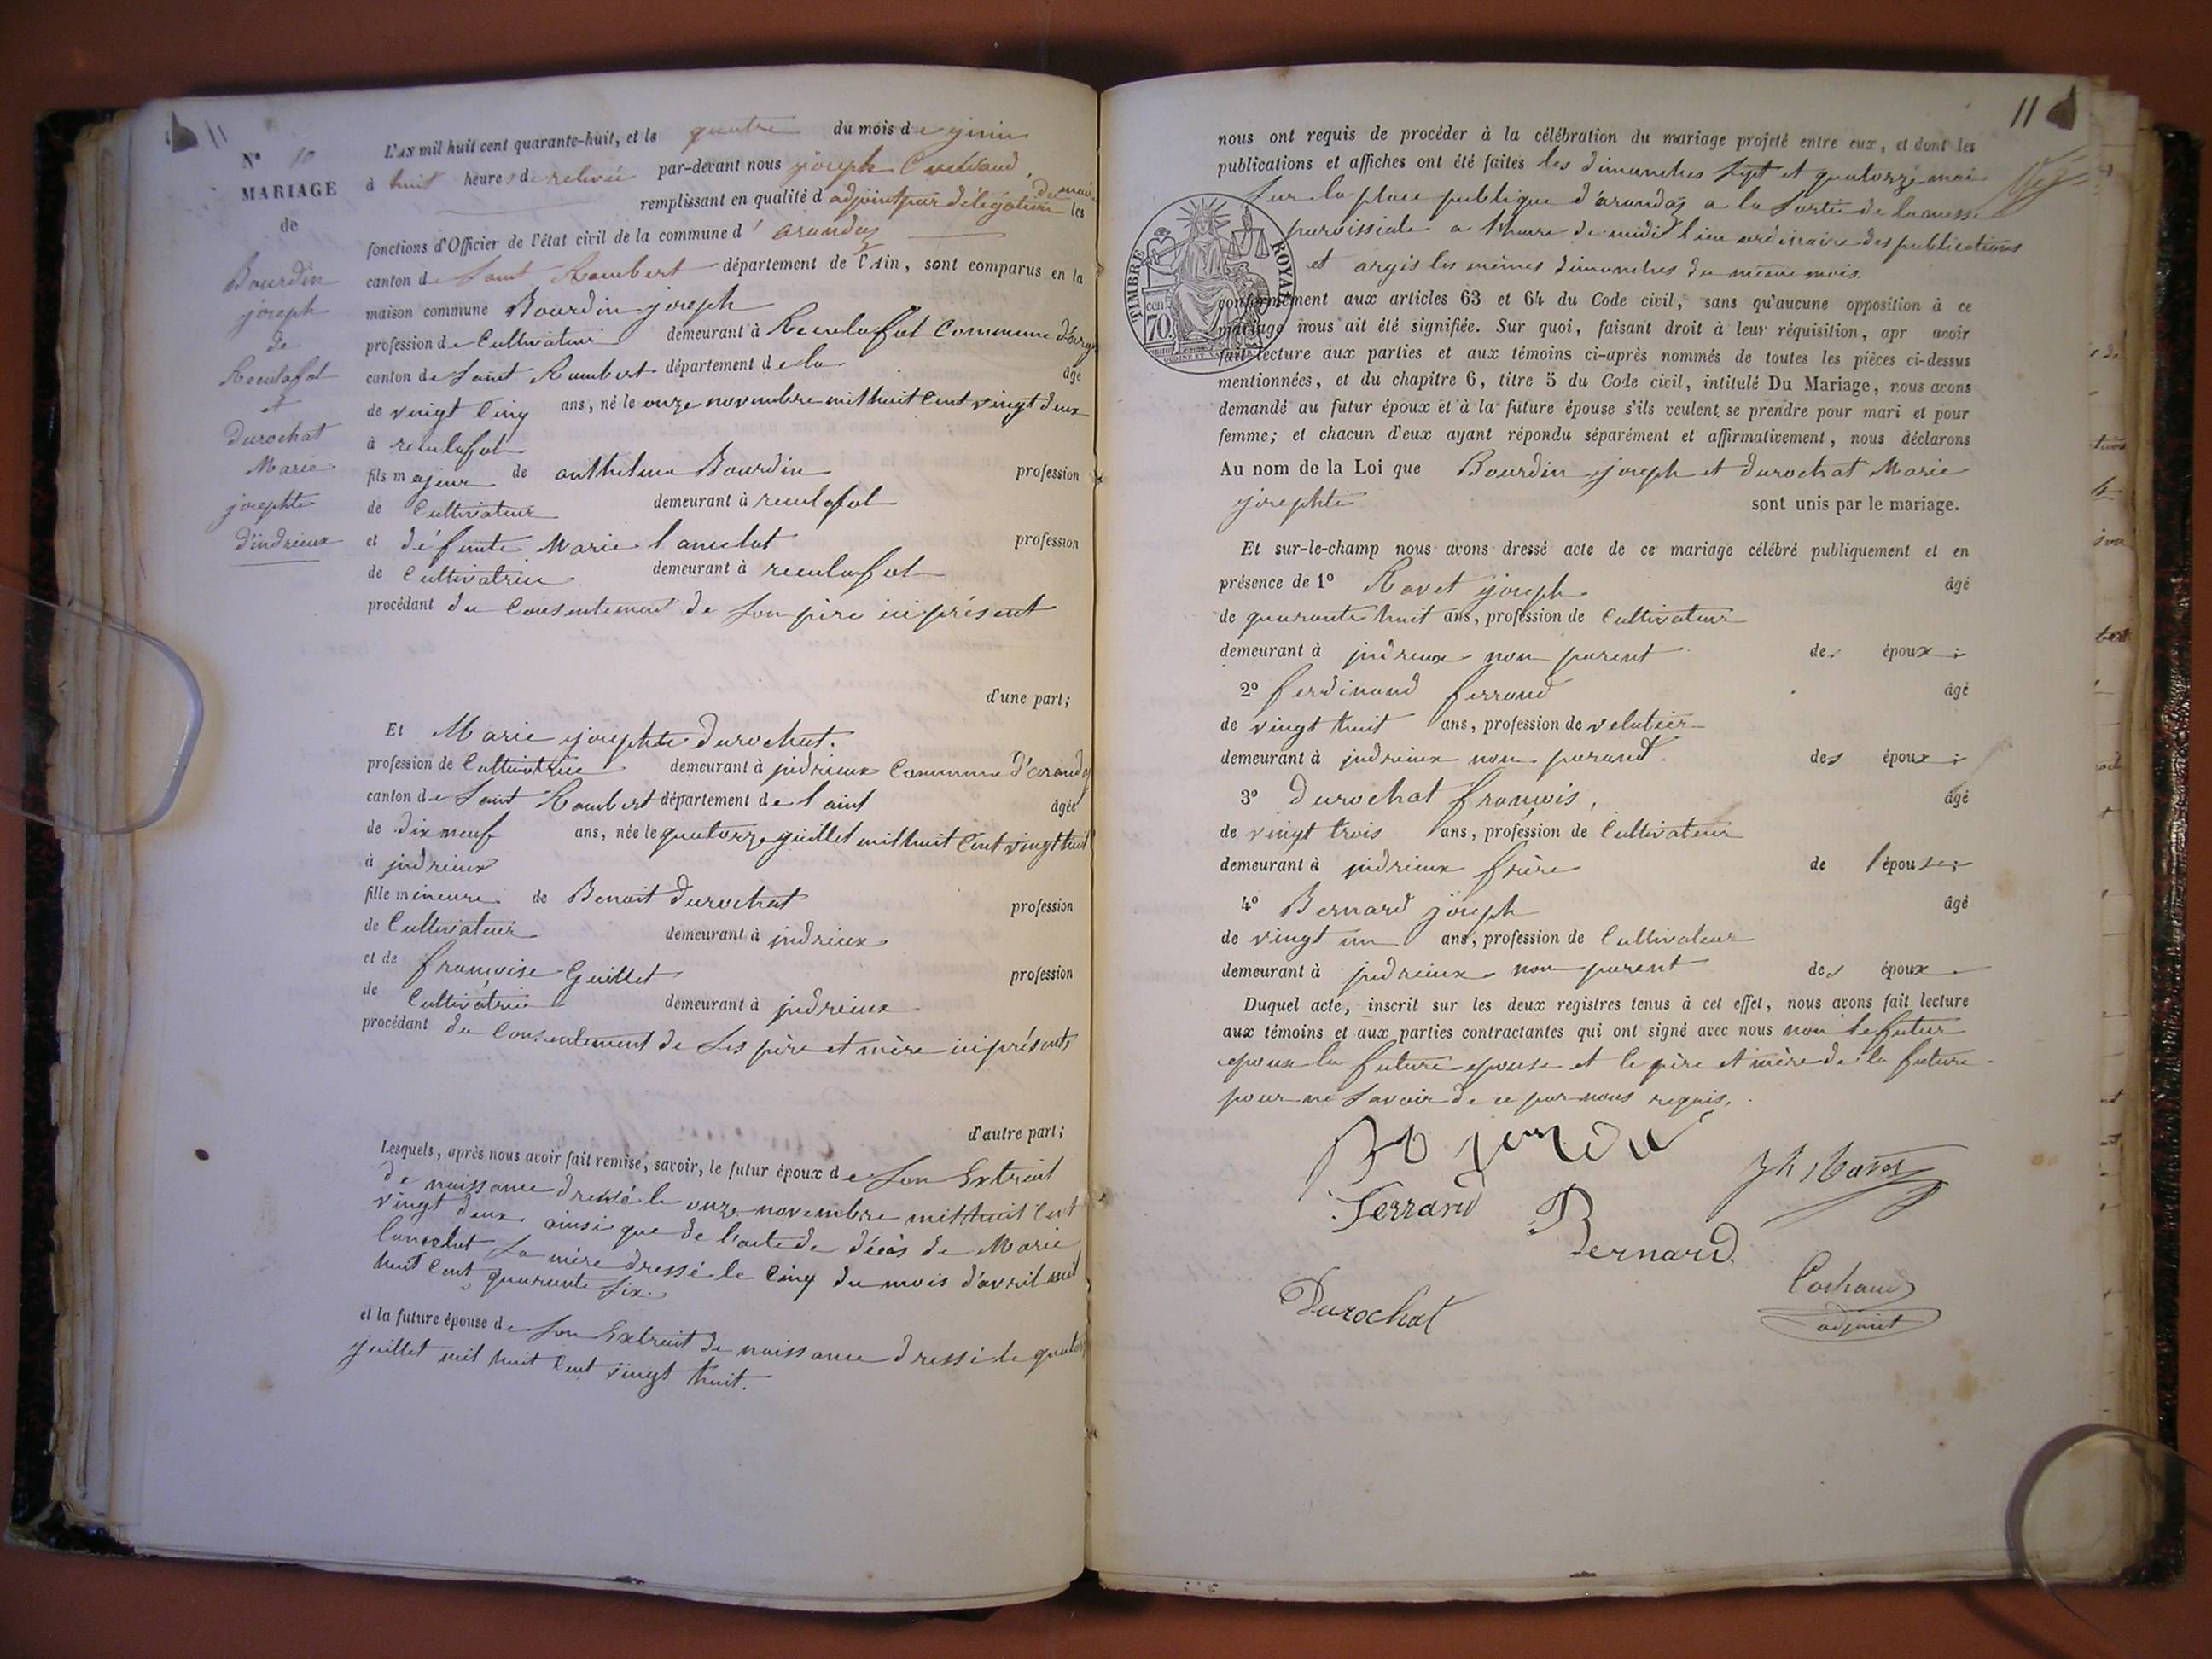 N° 10
MARIAGE
de
Bourdin
joseph
de
Reculafol
et
Durochat
Marie
josephte
d'indrieux
L'AN mil huit cent quarante-huit, et le quatre du mois de juin
à huit heures de relevée par-devant nous joseph
remplissant en qualité d'adjoint par délégation de maire les
fonctions d'Officier de l'état civil de la commune d' arandaz
canton de Saint Rambert département de l'Ain, sont comparus en la
maison commune Bourdin joseph
profession de Cultivateur demeurant à Reculafol Commune d'argis
canton de Saint Rambert département de la âgé
de vingt Cinq ans, né le onze novembre mil huit Cent vingt deux
à reculafol
fils majeur de anthelme Bourdin profession
de Cultivateur demeurant à reculafol
et défunte Marie lancelot profession
de Cultivatrice demeurant à reculafol
procédant du Consentement de Son père ici présent
d'une part;
Et Marie josephte Durochat.
profession de Cultivatrice demeurant à indrieux Commune d'arandaz
canton de Saint Rambert département de l'aint âgée
de dix neuf ans, née le quatorze juillet mil huit Cent vingt huit
à indrieux
fille mineure de Benoit Durochat profession
de Cultivateur demeurant à indrieux
et de françoise Guillet profession
de Cultivatrice demeurant à indrieux
procédant du Consentement de Ses père et mère ici présents
d'autre part;
Lesquels, après nous avoir fait remise, savoir, le futur époux de Son Extrait
de naissance dressé le onze novembre mil huit Cent
vingt deux ainsi que de l'acte de décès de Marie
lancelot Sa mère dressé le Cinq du mois d'avril mil
huit Cent quarante Six.
et la future épouse de Son Extrait de naissance dressé le quatorze
juillet mil huit Cent vingt huit.
11
nous ont requis de procéder à la célébration du mariage projeté entre eux, et dont les
publications et affiches ont été faites les dimanches Sept et quatorze mai
Sur la place publique d'arandaz a la Sortie de la messe
paroissiale a 1 heure de midi lieu ordinaire des publications
et argis les mêmes dimanches du même mois.
TIMBRE ROYAL
70
conformément aux articles 63 et 64 du Code civil, sans qu'aucune opposition à ce
mariage nous ait été signifiée. Sur quoi, faisant droit à leur réquisition, apr avoir
fait lecture aux parties et aux témoins ci-après nommés de toutes les pièces ci-dessus
mentionnées, et du chapitre 6, titre 5 du Code civil, intitulé Du Mariage, nous avons
demandé au futur époux et à la future épouse s'ils veulent se prendre pour mari et pour
femme; et chacun d'eux ayant répondu séparément et affirmativement, nous déclarons
Au nom de la Loi que Bourdin joseph et durochat Marie
josephte sont unis par le mariage.
Et sur-le-champ nous avons dressé acte de ce mariage célébré publiquement et en
présence de 1° Ravet joseph âgé
de quarante huit ans, profession de Cultivateur
demeurant à indrieux non parent des époux;
2° ferdinand ferrand âgé
de vingt huit ans, profession de veloutier
demeurant à indrieux non parand des époux;
3° Durochat françois, âgé
de vingt trois ans, profession de Cultivateur
demeurant à indrieux frère de l'épouse;
4° Bernard joseph âgé
de vingt un ans, profession de Cultivateur
demeurant à indrieux non parent des époux
Duquel acte, inscrit sur les deux registres tenus à cet effet, nous avons fait lecture
aux témoins et aux parties contractantes qui ont signé avec nous non le futur
epoux la future epouse et le père et mère de la future
pour ne Savoir de ce par nous requis.
Jh Ravet
Ferrand
Bernard
Durochat
adjoint